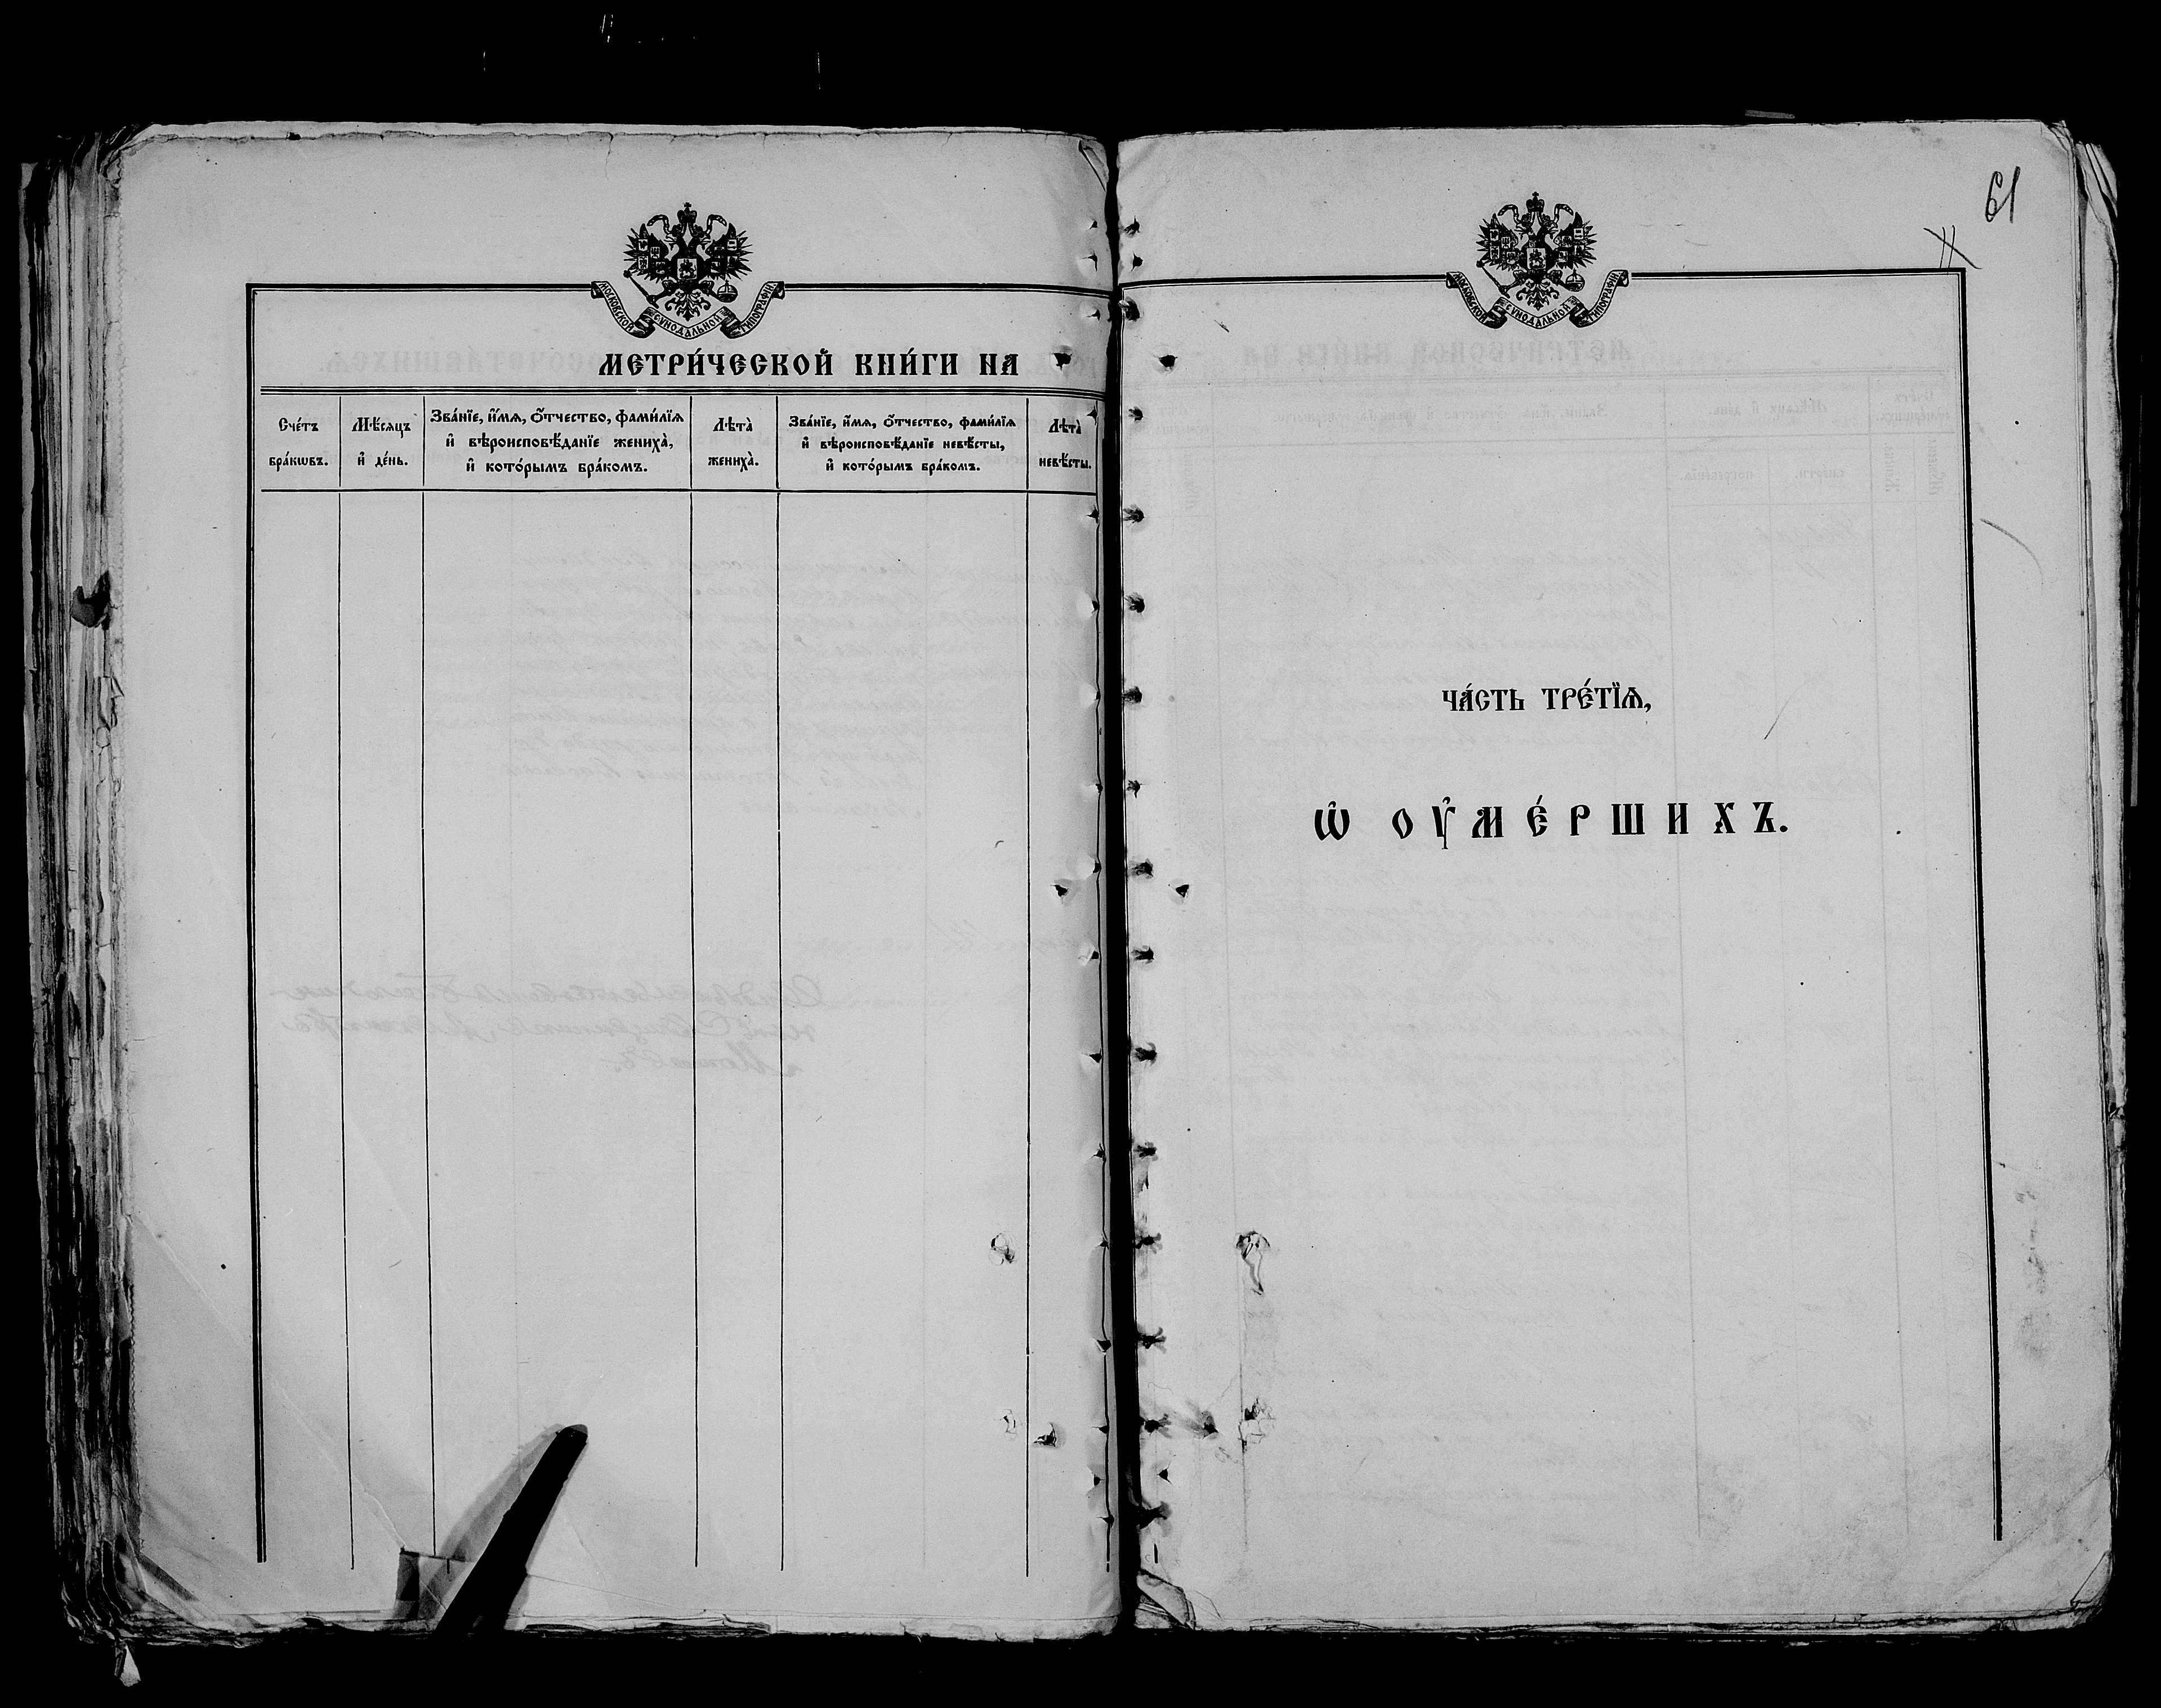 МОСКОВСКОЙ СѴНОДАЛЬНОЙ ТИПОГРАФІИ
МЕТРИ́ЧЕСКОЙ КНИ́ГИ НА
Сче́тъ
бра́кѡвъ.
Мѣ́сяцъ
и҆ де́нь.
Зва́нїе, и҆́мѧ, ѻ҆́тчество, фами́лїѧ
и҆ вѣроисповѣ́данїе жениха̀,
и҆ кото́рымъ бра́комъ.
Лѣта̀
жениха̀.
Зва́нїе, и҆́мѧ, ѻ҆́тчество, фами́лїѧ
и҆ вѣроисповѣ́данїе невѣ́сты,
и҆ кото́рымъ бра́комъ.
Лѣта̀
невѣ́сты.
61
МОСКОВСКОЙ СѴНОДАЛЬНОЙ ТИПОГРАФІИ
ЧА́СТЬ ТРЕ́ТЇѦ,
Ѡ҆ ОУ҆МЕ́РШИХЪ.